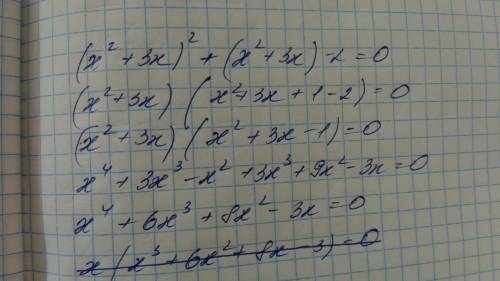 (x² + 3x)² + (x² + 3x) - 2 = 0
(x² + 3x) (x² + 3x + 1 - 2) = 0
(x² + 3x) (x² + 3x - 1) = 0
x⁴ + 3x³ - x² + 3x³ + 9x² - 3x = 0
x⁴ + 6x³ + 8x² - 3x = 0
x (x³ + 6x² + 8x - 3) = 0